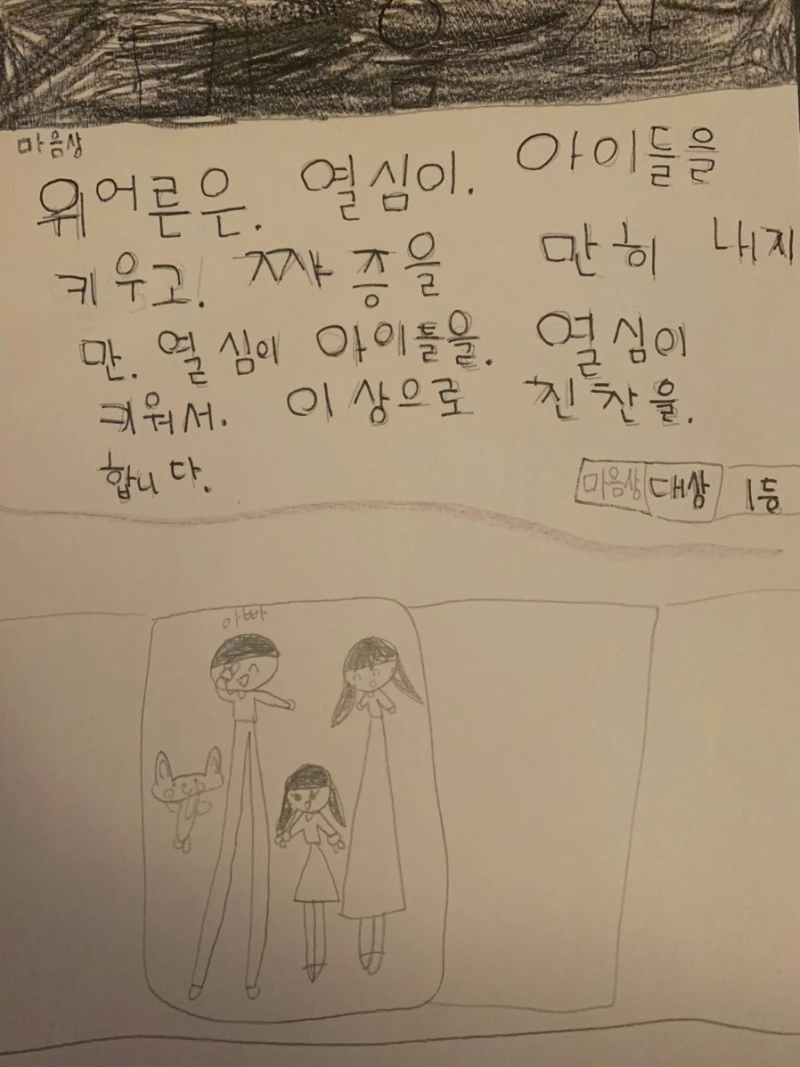 상
마음상
위어른은. 열심이. 아이들을
키우고. 짜증을 만히 내지
만. 열심이 아이틀을. 열심이
키워서. 이상으로 친찬을.
합니다.
마음상 대상 1등
아빠